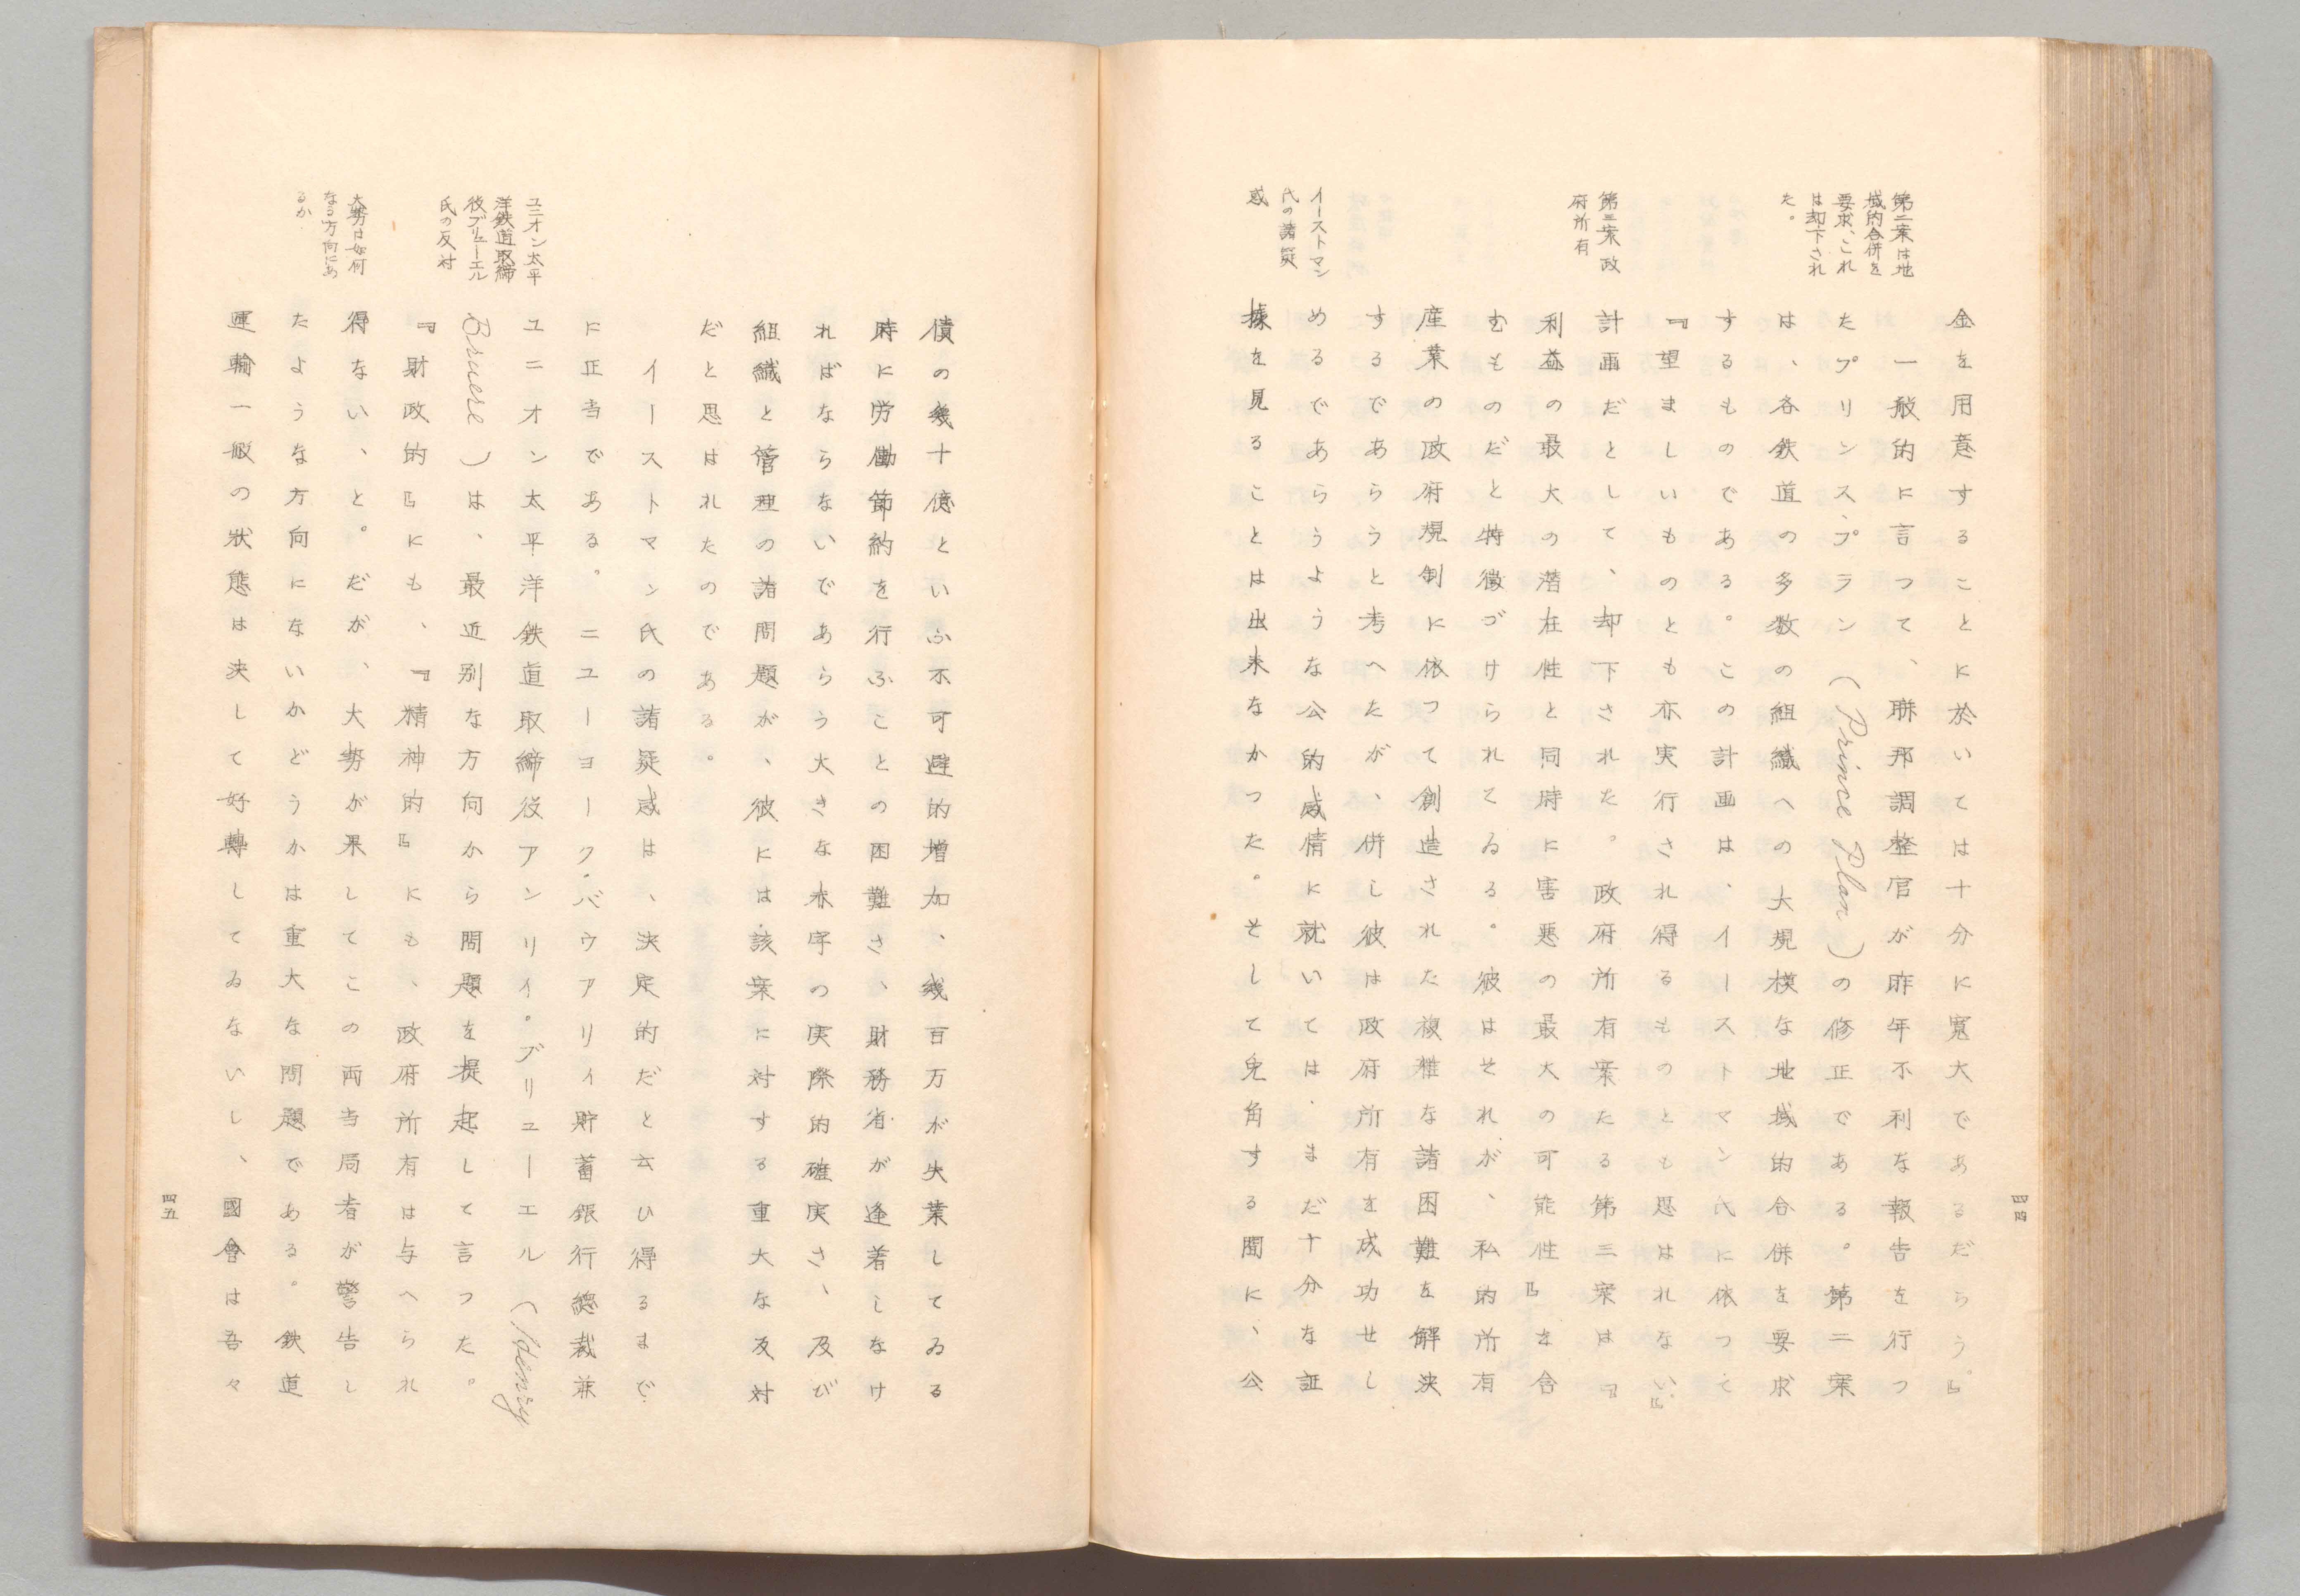 第二案は地
域的合併を
要求、これ
は却下され
た。
第三案 政
府所有
イーストマン
氏の諸疑
惑
金を用意することに於いては十分に寛大であるだらう。』
一般的に言つて、聯邦調整官が昨年不利な報告を行つ
たプリンス・プラン(Prince Plan)の修正である。第二案
は、各鉄道の多数の組織への大規模な地域的合併を要求
するものである。この計画は、イーストマン氏に依つて
『望ましいものとも亦実行され得るものとも思はれない。』
計画だとして、却下された。政府所有案たる第三案は『
利益の最大の潜在性と同時に害悪の最大の可能性』を含
むものだと特徴づけられてゐる。彼はそれが、私的所有
産業の政府規制に依つて創造された複雑な諸困難を解決
するであらうと考へたが、併し彼は政府所有を成功せし
めるであらうような公的感情に就いては、まだ十分な証
拠を見ることは出来なかつた。そして兎角する間に、公
四四
ユニオン太平
洋鉄道取締
役ブリューエル
氏の反対
大勢は如何
なる方向にあ
るか
債の幾十億といふ不可避的増加、幾百万が失業してゐる
時に労働節約を行ふことの困難さ、財務省が逢着しなけ
ればならないであらう大きな赤字の実際的確実さ、及び
組織と管理の諸問題が、彼には該案に対する重大な反対
だと思はれたのである。
イーストマン氏の諸疑惑は、決定的だと云ひ得るまで
に正当である。ニユーヨーク・バウアリイ貯蓄銀行総裁兼
ユニオン太平洋鉄道取締役アンリイ・ブリユーエル(Henry
Bruere)は、最近別な方向から問題を提起して言つた。
『財政的』にも、『精神的』にも、政府所有は与へられ
得ない、と。だが、大勢が果してこの両当局者が警告し
たような方向にないかどうかは重大な問題である。鉄道
運輸一般の状態は決して好轉してゐないし、國會は吾々
四五